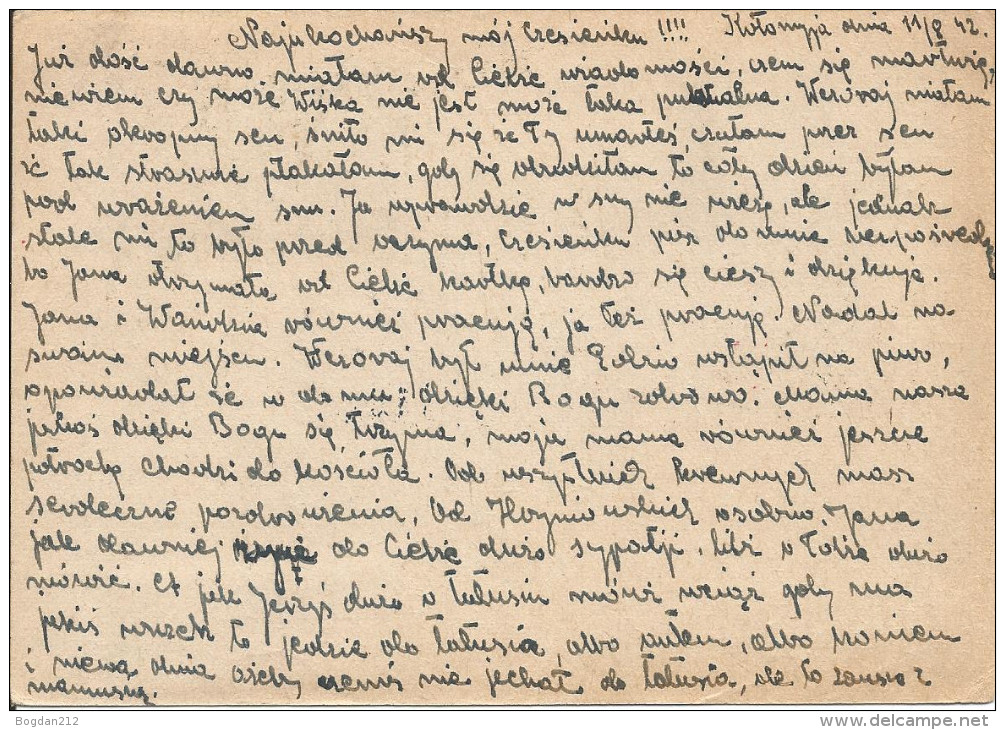 Najukochańszy mój Czesieńku !!!! Kołomyja dnia 11/8 42.
Już dość dawno miałam od Ciebie wiadomości, czem się martwię,
niewiem czy może Wiśka nie jest może taka punktualna. Wczoraj miałam
taki okropny sen, śniło mi się że Ty umarłeś, czułam przez sen
że tak strasznie płakałam, gdy się obudziłam to cały dzień byłam
pod wrażeniem snu. Ja wprawdzie w sny nie wieżę, ale jednak
stale mi to było przed oczyma, Czesieńku pisz do mnie bezpośrednio
bo Jana otrzymała od Ciebie kartkę, bardzo się cieszy i dziękuje.
Jana i również pracują, ja też pracuję. Nadal na
swoim miejscu. Wczoraj był u mnie Edzio wstąpił na piwo,
opowiadał że w domu dzięki Bogu zdrowo. Mama nasza
jakoś dzięki Bogu się trzyma, moja mama również jeszcze
potrochę chodzi do kościoła. Od wszystkich krewnych masz
serdeczne pozdrowienia, od osobno. Jana
jak dawniej do Ciebie dużo sypatji, lubi o Tobie dużo
mówić. A jak Jerzyś dużo o tatusiu mówi wciąż gdy ma
jakiś wózek to jedzie do tatusia, albo autem, albo koniem
i niema dnia ażeby nie jechał do tatusia, ale to zawsze z
mamusią.
Bogdan212
delcampe.net